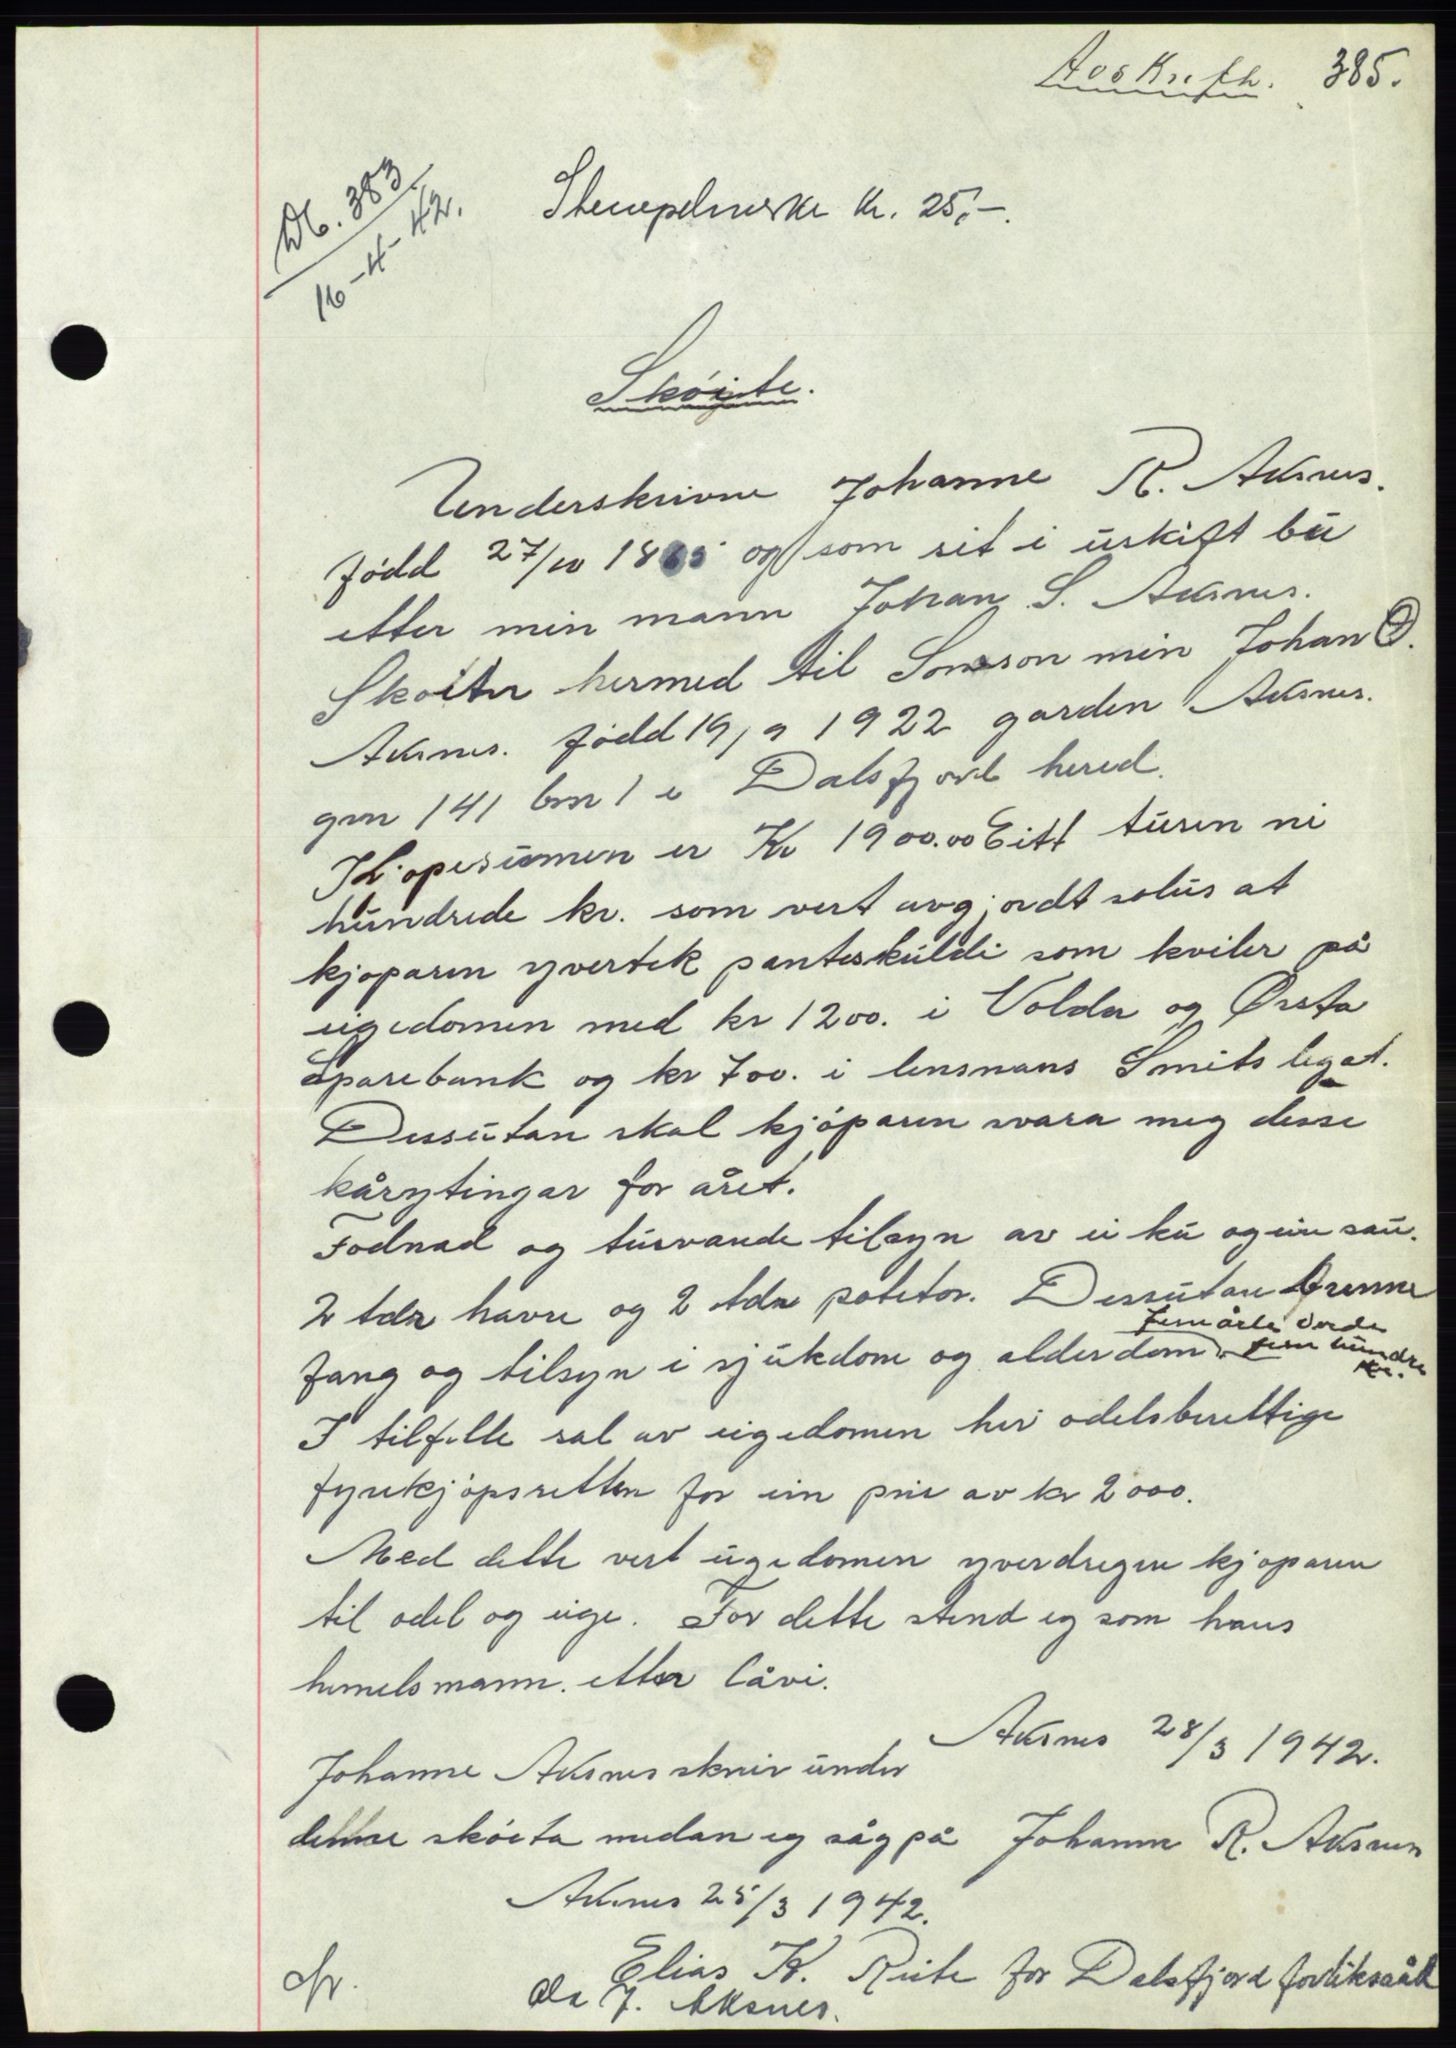 Avskrift. 385.
Db. 383
16-4-42.
Stempelmerke kr. 25,-.
Skøite.
Underskrivne Johanne R. Aksnes.
født 27/10 1865 og som sit i uskift bu
etter min mann Johan S. Aksnes.
Skøiter hermed til Sonson min Johan O.
Aksnes. født 19/9 1922 garden Aksnes.
gnr 141 bnr 1 i Dalsfjord hered.
Kjøpesumen er Kr 1900.00 Eitt tusen ni
hundrede kr. som vert avgjordt solus at
kjøparen yvertek panteskuldi som kviler på
eigedomen med kr 1200. i Volda og Ørsta
Sparebank og kr 700. i lensmans Smits legat.
Dessutan skal kjøparen svara meg desse
kårytingar for året.
Fodnad og tusvande tilsyn av ei ku og ein sau.
2 tdr havre og 2 tdr poteter. Dessutan brenne
fang og tilsyn i sjukdom og alderdom. Femårleg verde fem hundre kr.
I tilfelle sal av eigedomen hev odelsberettige
fyrekjøpsretten for ein pris av kr 2000.
Med dette vert eigedomen yverdregen kjøparen
til odel og eige. For dette stend eg som hans
heimelsmann. etter låvi.
Aksnes 28/3 1942.
Johanne Aksnes skriv under
denne skøita medan eg såg på Johanne R. Aksnes
Aksnes 25/3 1942.
Elias K. Rute for Dalsfjord forliksråd
Ola J. Aksnes.